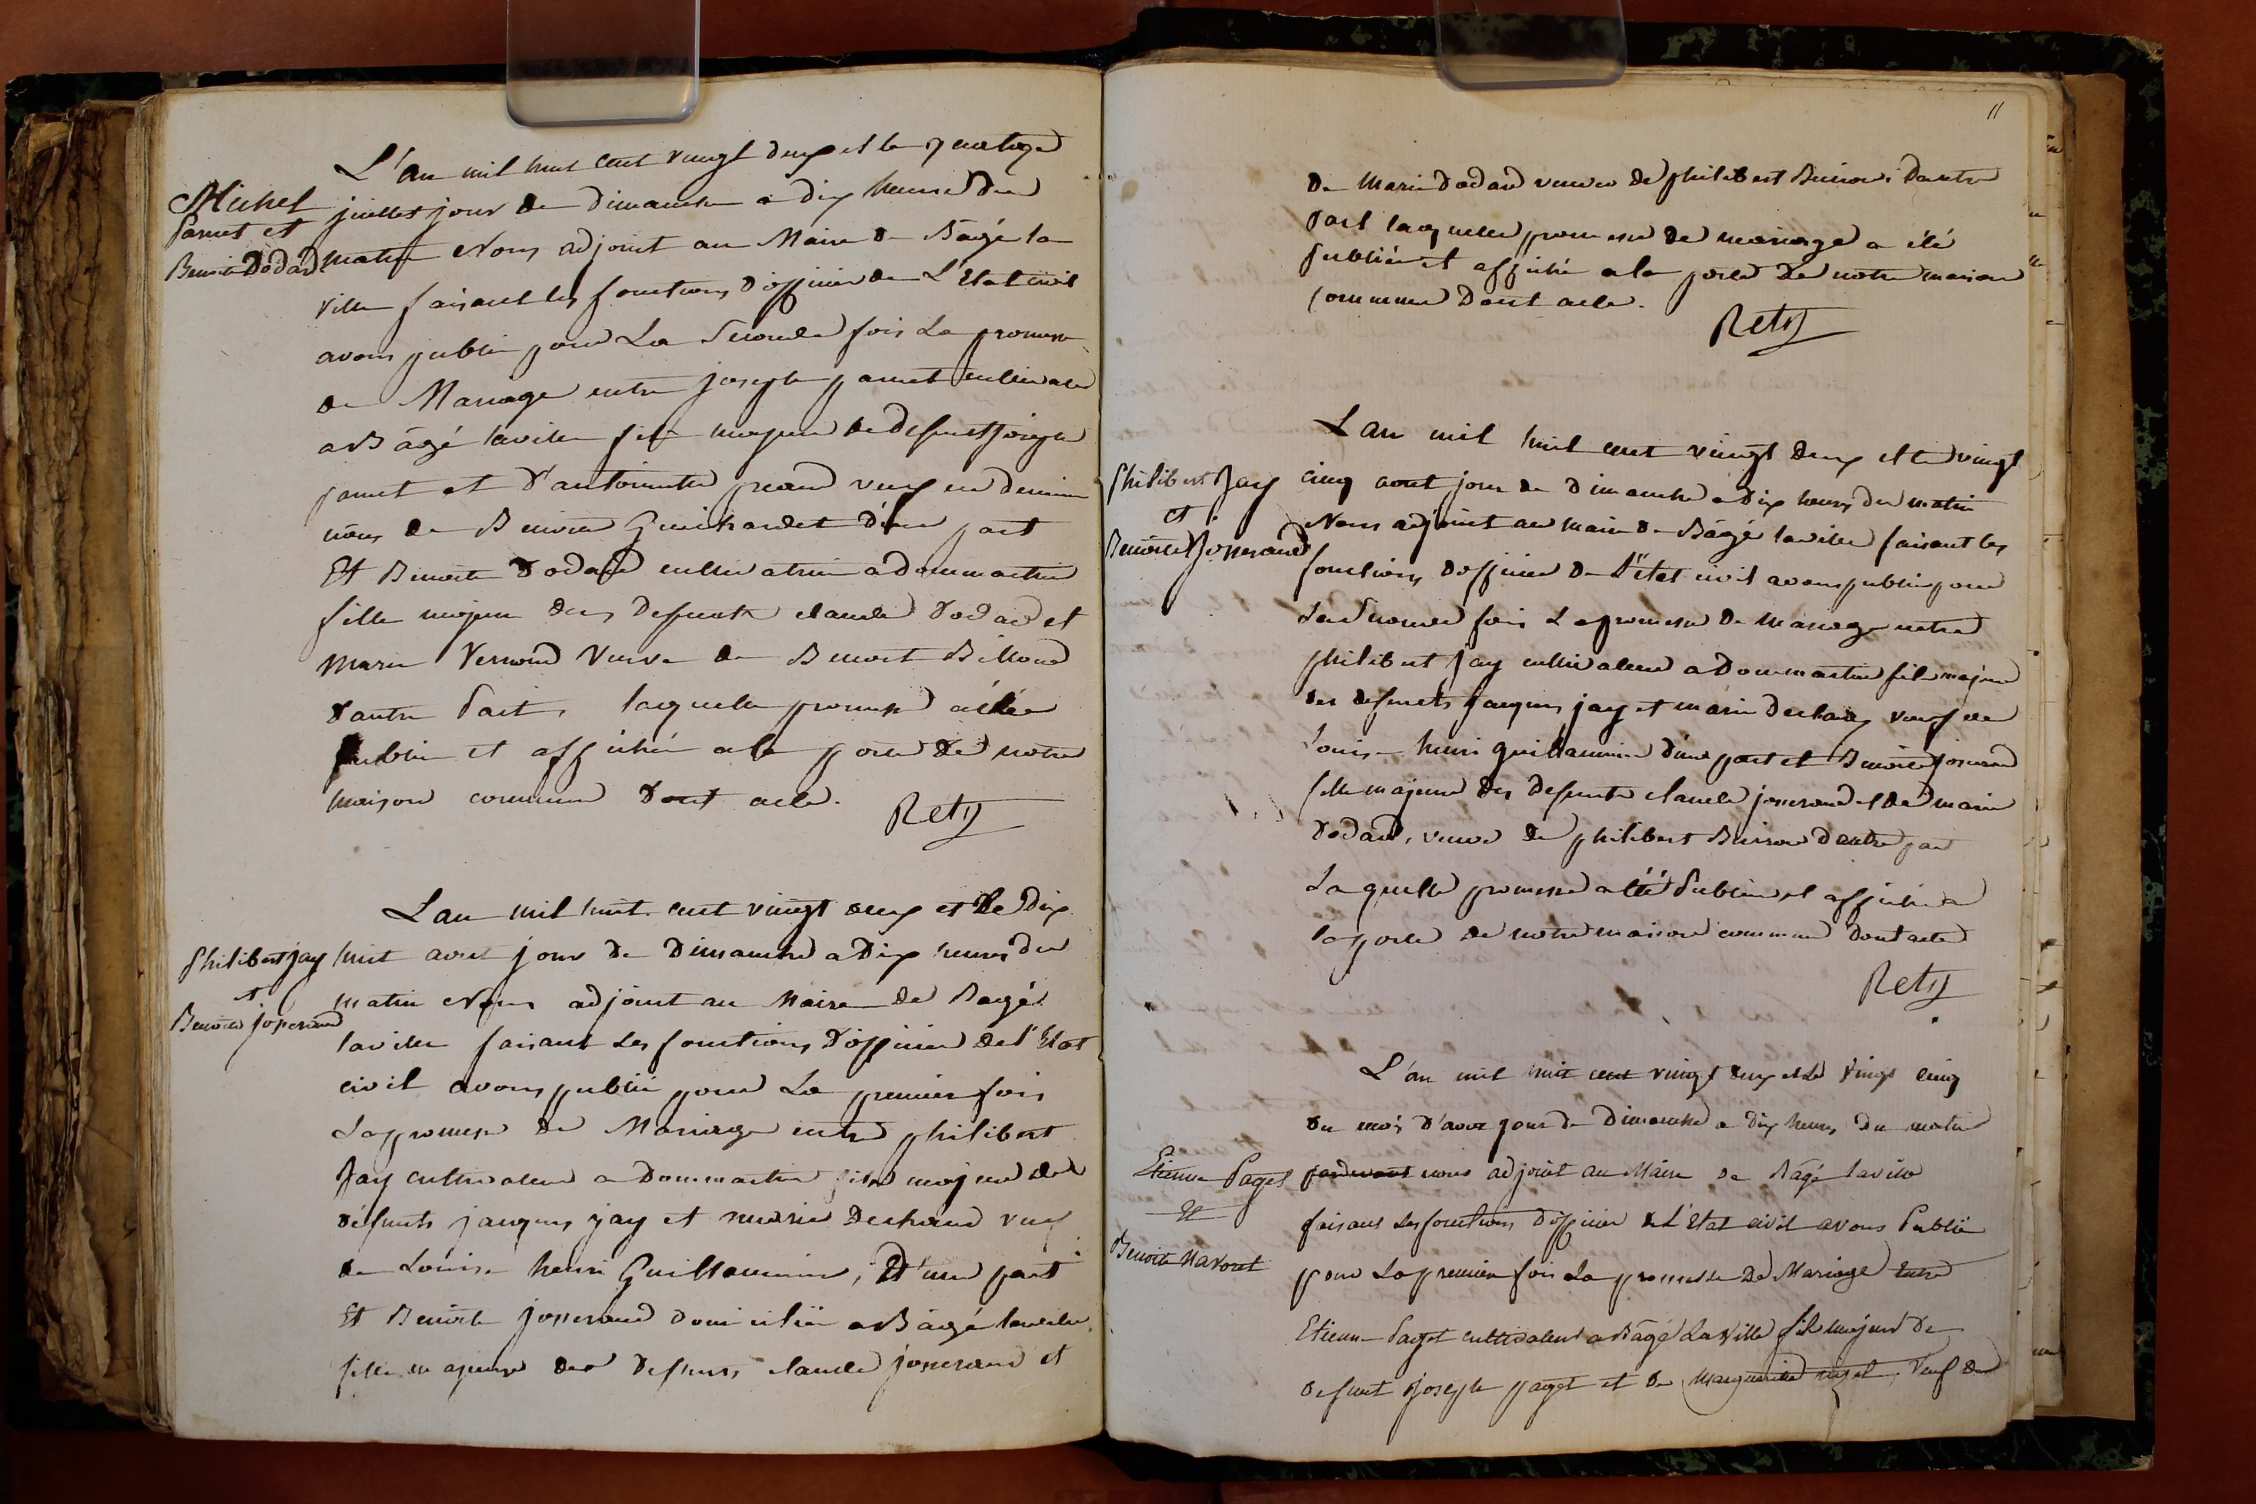 L'an mil huit cent vingt deux et le quatorze
Michel
Pamet et
Benoite Dodard
juillet jour de dimanche a dix heures du
matin Nous adjoint au Maire de Bâgé la
ville faisant les fonctions d'officier de L'Etat civil
avons publié pour La Seconde fois La promesse
de Mariage entre joseph pamet cultivateur
a Bâgé laville fils majeur de defunt joseph
pamet et d'antoinette veuf en
nôces de Benoite Guichardet d'une part
Et Benoite Dodard cultivatrice a dommartin
fille majeure des defunts claude Dodard et
Marie Verrond Veuve de Benoit Billoud
d'autre Part, laquelle promesse a été
publiée et affichée a la porte de notre
maison commune dont acte.
Rety
Lan mil huit cent vingt deux et Le dix
Philibert jay
et
Benoite josserand
huit aout jour de Dimanche a Dix heures du
matin Nous adjoint au Maire de Bagé
laville faisant Les fonctions D'officier de l'Etat
civil avons publié pour La premiere fois
La promesse de Mariage entre philibert
Jay cultivateur a Dommartin fils majeur des
défunts jacques jay et marie Dechaud veuf
de Louise henri Guillaumin, D'une part
Et Benoite josserand domiciliée a Bâgé laville
fille majeure des defunts claude josserand et
11
de Marie Dodard veuve de philibert Buiron Dautre
part laquelle promesse de mariage a été
Publiée et affichée a la porte De notre maison
Commune Dont acte.
Rety
Lan mil huit cent vingt deux et le vingt
Philibert Jay
et
Benoite josserand
cinq aout jour de Dimanche a Dix heures du matin
Nous adjoint au maire de Bâgé laville faisant les
fonctions d'officier de L'état civil avons publié pour
La Seconde fois La promesse De Mariage entre
philibert jay cultivateur a Dommartin fils majeur
des defunts jacques jay et marie dechaud veuf de
Louise henri guillaumin d'une part et Benoite joserand
fille majeure des defunts claude josserand et de marie
Dodard, veuve de philibert Buiron d'autre part
La quelle promesse a été Publiée et affichée a
la porte de notre maison commune dont acte
Rety
L'an mil huit cent vingt deux et Le Vingt cinq
du mois D'aout jour de Dimanche a dix heures Du matin
Etienne Paget
Et
Benoite Navoret
pardevant nous adjoint au Maire de Bâgé laville
faisant Les fonctions d'officier de L'Etat civil avons Publié
pour La premiere fois La promesse De Mariage Entre
Etienne Paget cultivateur a Bâgé La Ville fils majeur de
defunt joseph paget et de Marguerite Veuf de